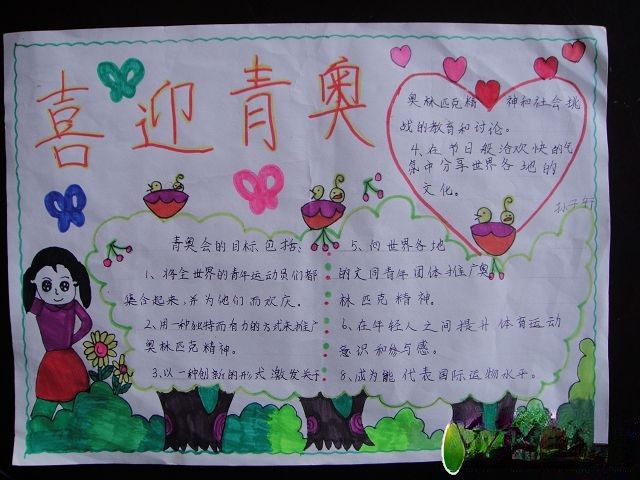 喜迎青奥
青奥会的目标包括：
1、将全世界的青年运动员们都
集合起来，并为他们而欢庆。
2、用一种独特而有力的方式来推广
奥林匹克精神。
3、以一种创新的形式激发关于
奥林匹克精 神和社会挑
战的教育和讨论。
4、在节日般洽欢快的气
氛中分享世界各地的
文化。
孙子轩
5、向世界各地
的不同青年团体推广奥
林匹克精神。
6、在年轻人之间提升体育运动
意识和参与感。
8、成为能代表国际运物水平。